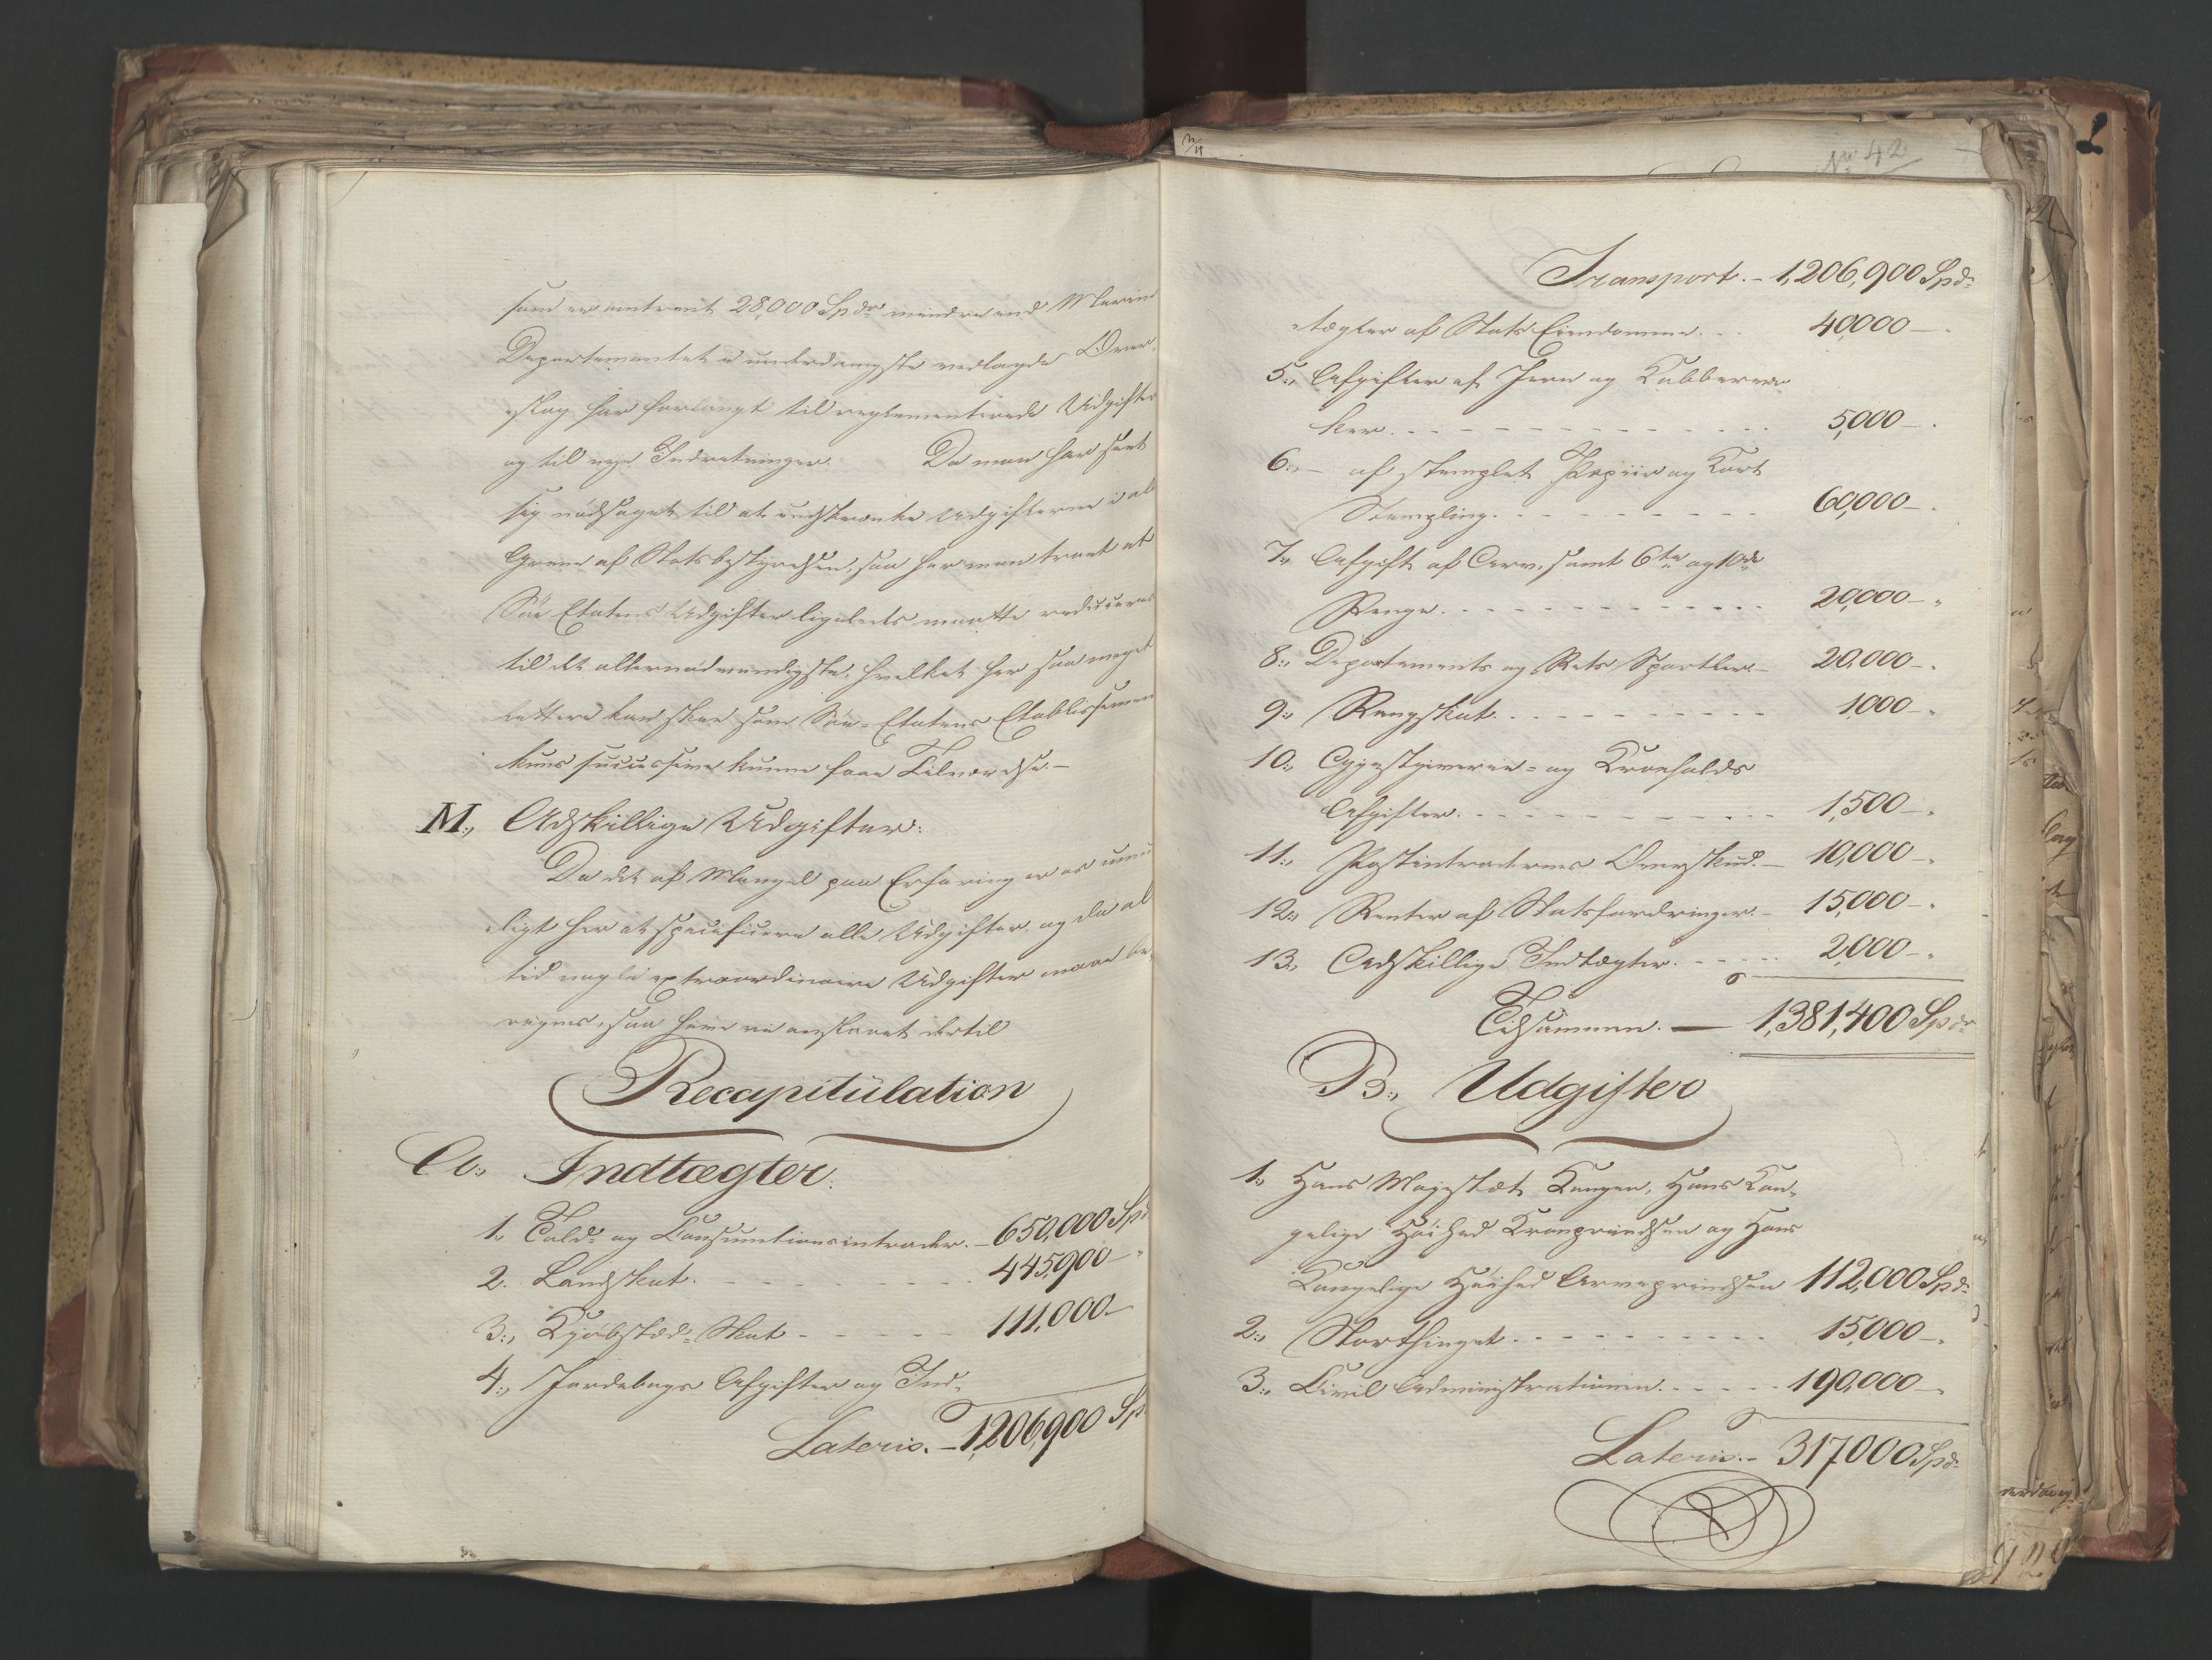 som er omtrent 28,000 Spdr mindre end Marine
Departementet i underdanigste vedlagde Over-
slag har forlangt til reglementerede Udgifter
og til nye Indretninger. Da man har seet
sig nødsaget til at indskrænke Udgifterne i al
Grene af Statsbestyrelsen, saa har man troet at
Søe Etatens Udgifter ligeledes maatte reduceres
til det allernødvendigste, hvilket her saa meget
lettere kan skee som Søe-Etatens Etablissemen
kuns successive kunne faae Tilværelse.—
M., Adskillige Udgifter.
Da det af Mangel paa Erfaring er os umu
ligt her at specificere alle Udgifter, og da al
tid nogle extraordinaire Udgifter maae be-
regnes, saa have vi anslaaet dertil
Recapitulation
A., Indtægter.
1. Told- og Consumtionsintrader. — 650,000 Spd
2. Landskat. - - - 445,900 —
3., Kjøbstæd-Skat - - - 111,000 —
4., Jordebogs Afgifter og Ind-
Lateris. — 1,206,900 Sp
Nº 42
Transport. — 1,206,900 Spd:
tægter af Stats Eiendomme. - - 40,000 —.
5., Afgifter af Jern og Kobberver-
ker. - - - 5,000 —.
6., — af stemplet Papiir og Kort
Stempling. - - - 60,000 —.
7., Afgift af Arv, samt 6te og 10de
Penge. - - - 20,000 —.
8., Departements og Rets Sportler. — 20,000 —.
9., Rangskat. - - - 1,000 —.
10., Gjæstgiverie- og Kroeholds
Afgifter. - - - 1,500 —.
11., Postintradernes Overskud. — 10,000 —.
12., Renter af Statsfordringer. — 15,000 —.
13., Adskillige Indtægter. - - - 2,000 —.
Tilsammen. — 1,381,400 Spdr
B., Udgifter
1., Hans Majestæt Kongen, Hans Kon-
gelige Høihed Kronprindsen og Hans
Kongelige Høihed Arveprindsen 112,000 Spd:
2., Storthinget. - - - 15,000 —.
3., Civil Administrationen. - - - 190,000 —.
Lateris. — 317,000 Spd: